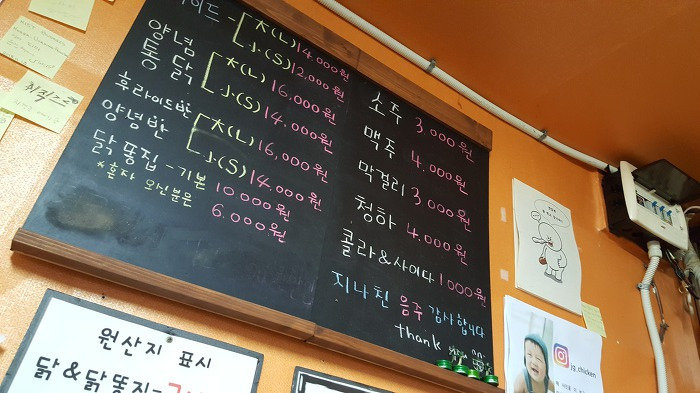 이드 - 大(L) 14,000원
小(S) 12,000원
양념
통닭 大(L) 16,000원
小(S) 14,000원
후라이드반
양념반 大(L) 16,000원
小(S) 14,000원
닭똥집 - 기본 10,000원
*혼자 오신분은 6,000원
소주 3,000원
맥주 4,000원
막걸리 3,000원
청하 4,000원
콜라&사이다 1000원
지나친 음주 감사합니다
thank
원산지 표시
닭&닭똥집=
jg_chicken